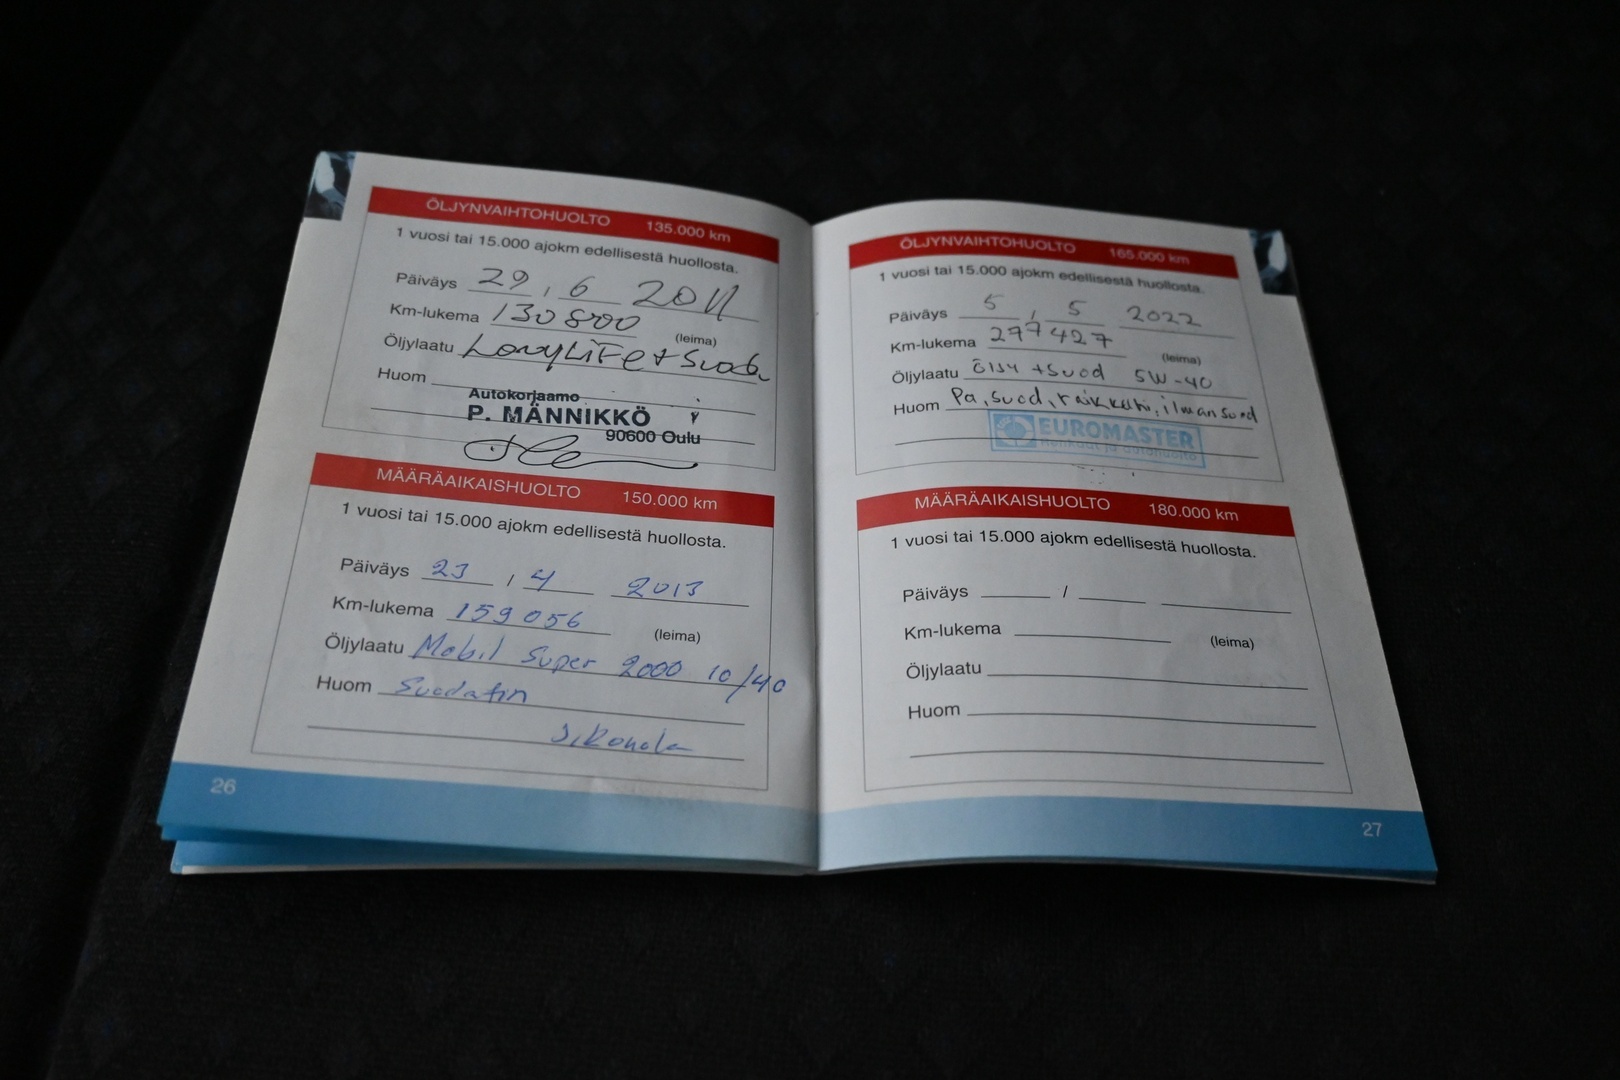 ÖLJYNVAIHTOHUOLTO 135.000 km
1 vuosi tai 15.000 ajokm edellisestä huollosta.
Päiväys 29 , 6 2011
Km-lukema 130800
(leima)
Öljylaatu LongLife + Suod.
Huom
Autokorjaamo
P. MÄNNIKKÖ
90600 Oulu
MÄÄRÄAIKAISHUOLTO 150.000 km
1 vuosi tai 15.000 ajokm edellisestä huollosta.
Päiväys 23 / 4 2013
Km-lukema 159056
(leima)
Öljylaatu Mobil Super 2000 10/40
Huom Suodatin
26
ÖLJYNVAIHTOHUOLTO 165.000 km
1 vuosi tai 15.000 ajokm edellisestä huollosta.
Päiväys 5 / 5 2022
Km-lukema 277427
(leima)
Öljylaatu Öljy + Suod 5W-40
Huom Pa, suod, raikkahi, ilmansuod
EUROMASTER
Renkaat ja autohuolto
MÄÄRÄAIKAISHUOLTO 180.000 km
1 vuosi tai 15.000 ajokm edellisestä huollosta.
Päiväys /
Km-lukema
(leima)
Öljylaatu
Huom
27